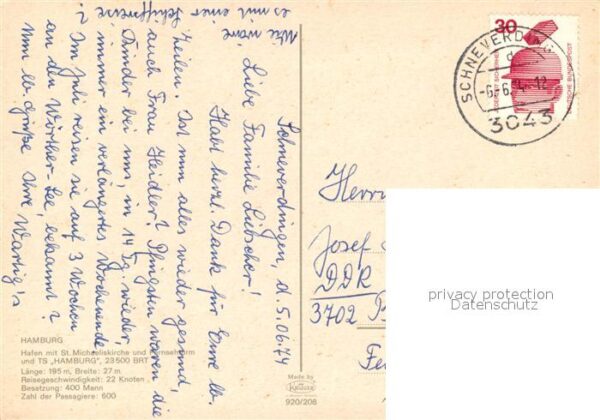 Wie wäre
es mit einer Schiffsreise
?
Schneverdingen, d. 5.06.74
Liebe Familie Liebscher!
Habt herzl. Dank für Eure lb.
Zeilen. Ist nun alles wieder gesund,
auch Frau Heidler? Pfingsten waren die
Kinder bei uns, in 14 Tg. wieder,
immer ein verlängertes Wochenende.
Im Juli reisen sie auf 3 Wochen
an den Wörther-See, bekannt?
Nun lb. Grüße Ihre
HAMBURG
Hafen mit St. Michaeliskirche und Fernsehturm
und TS „HAMBURG", 23500 BRT
Länge: 195 m, Breite: 27 m
Reisegeschwindigkeit: 22 Knoten
Besatzung: 400 Mann
Zahl der Passagiere: 600
Made by
Krüger
920/206
30
DEUTSCHE BUNDESPOST
SCHNEVERDINGEN
d
-6.-6.74-12
3043
Herrn
Josef
DDR
3702
privacy protection
Datenschutz